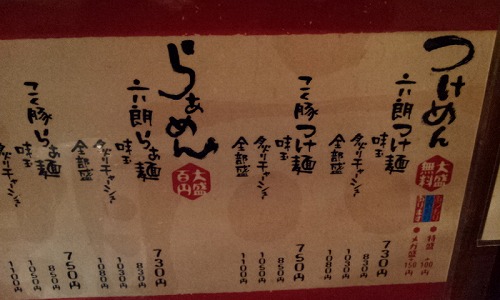 つけめん
大盛
無料
●特盛 +100円
●メガ盛 +150円
六朗つけ麺 730円
味玉 830円
炙りチャーシュー 1030円
全部盛 1080円
こく豚つけ麺 750円
味玉 850円
炙りチャーシュー 1050円
全部盛 1100円
らぁめん
大盛
百円
六朗らぁ麺 730円
味玉 830円
炙りチャーシュー 1030円
全部盛 1080円
こく豚らぁ麺 750円
味玉 850円
炙りチャーシュー 1050円
1100円